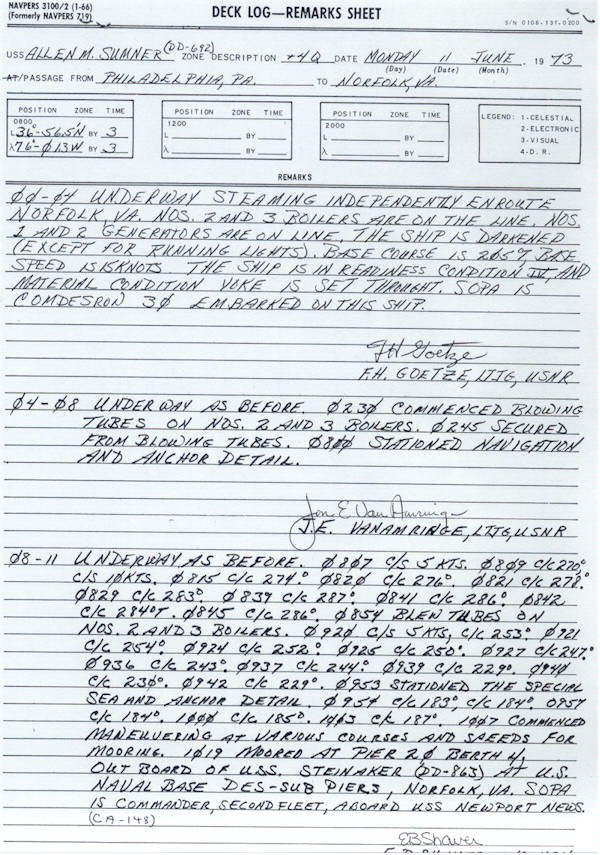 NAVPERS 3100/2 (1-66)
(Formerly NAVPERS 719)
DECK LOG—REMARKS SHEET
S/N 0106-131-0200
USS ALLEN M. SUMNER (DD-692) ZONE DESCRIPTION +4Q DATE MONDAY 11 JUNE, 1973
(Day) (Date) (Month)
AT/PASSAGE FROM PHILADELPHIA, PA. TO NORFOLK, VA.
POSITION ZONE TIME
0800
L 36°-56.5'N BY 3
λ 76°-Ø1.3'W BY 3
POSITION ZONE TIME
1200
L BY
λ BY
POSITION ZONE TIME
2000
L BY
λ BY
LEGEND: 1-CELESTIAL
2-ELECTRONIC
3-VISUAL
4-D. R.
REMARKS
ØØ-Ø4 UNDERWAY STEAMING INDEPENDENTLY ENROUTE
NORFOLK, VA. NOS. 2 AND 3 BOILERS ARE ON THE LINE. NOS.
1 AND 2 GENERATORS ARE ON LINE. THE SHIP IS DARKENED
(EXCEPT FOR RUNNING LIGHTS). BASE COURSE IS 205°T. BASE
SPEED IS 15 KNOTS. THE SHIP IS IN READINESS CONDITION IV, AND
MATERIAL CONDITION YOKE IS SET THROUGHT. SOPA IS
COMDESRON 3Ø EMBARKED ON THIS SHIP.
FH Goetze
F.H. GOETZE, LTJG, USNR
Ø4-Ø8 UNDERWAY AS BEFORE. Ø23Ø COMMENCED BLOWING
TUBES ON NOS. 2 AND 3 BOILERS. Ø245 SECURED
FROM BLOWING TUBES. Ø8ØØ STATIONED NAVIGATION
AND ANCHOR DETAIL.
Jon E. Van Amringe
J.E. VANAMRINGE, LTJG, USNR
Ø8-11 UNDERWAY AS BEFORE. Ø8Ø7 C/S 5 KTS. Ø8Ø9 C/C 270°,
C/S 1Ø KTS. Ø815 C/C 274°. Ø82Ø C/C 276°. Ø821 C/C 278°.
Ø829 C/C 283°. Ø839 C/C 287°. Ø841 C/C 286°. Ø842
C/C 284°T. Ø845 C/C 286°. Ø854 BLEW TUBES ON
NOS. 2 AND 3 BOILERS. Ø92Ø C/S 5 KTS, C/C 253°. Ø921
C/C 254°. Ø924 C/C 252°. Ø925 C/C 250°. Ø927 C/C 247°.
Ø936 C/C 243°. Ø937 C/C 244°. Ø939 C/C 229°. Ø94Ø
C/C 230°. Ø942 C/C 229°. Ø953 STATIONED THE SPECIAL
SEA AND ANCHOR DETAIL. Ø954 C/C 183°, C/C 184°. 0957
C/C 184°. 1ØØØ C/C 185°. 1ØØ3 C/C 187°. 1ØØ7 COMMENCED
MANEUVERING AT VARIOUS COURSES AND SPEEDS FOR
MOORING. 1Ø19 MOORED AT PIER 2Ø BERTH 4,
OUT BOARD OF U.S.S. STEINAKER (DD-863) AT U.S.
NAVAL BASE DES-SUB PIERS, NORFOLK, VA. SOPA
IS COMMANDER, SECOND FLEET, ABOARD USS NEWPORT NEWS.
(CA-148)
EBShaver